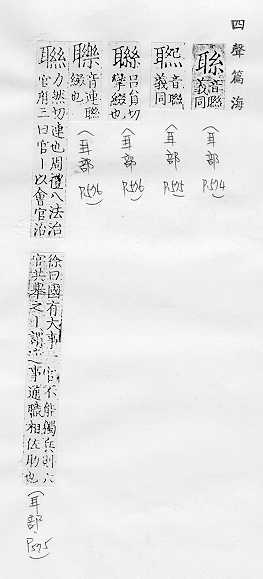 四聲篇海
音聯義同(耳部 P.524)
音聯義同(耳部 P.525)
呂員切攣綴也(耳部 P.526)
音連聯綴也(耳部 P.526)
聯力然切連也周禮八法治官府三曰官丨以會官治徐曰國有大事一官不能獨兵則六官共舉之丨謂事通職相佐助也(耳部, P.525)